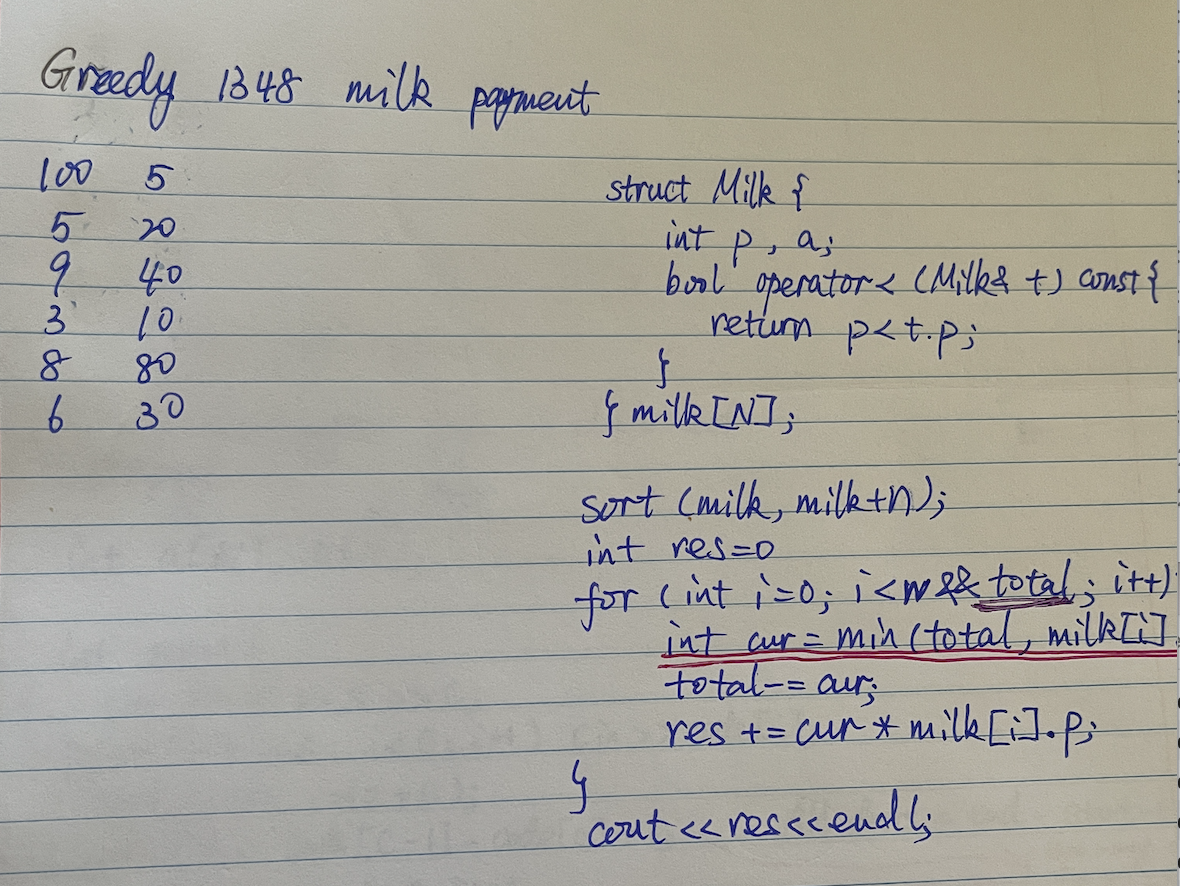 Greedy 1348 milk payment
100 5
5 20
9 40
3 10
8 80
6 30
struct Milk {
int p, a;
bool operator< (Milk& t) const {
return p<t.p;
}
} milk[N];
sort (milk, milk+n);
int res=0
for (int i=0; i<n && total; i++)
int cur = min(total, milk[i].
total-= cur;
res += cur * milk[i].p;
}
cout <<res<<endl;